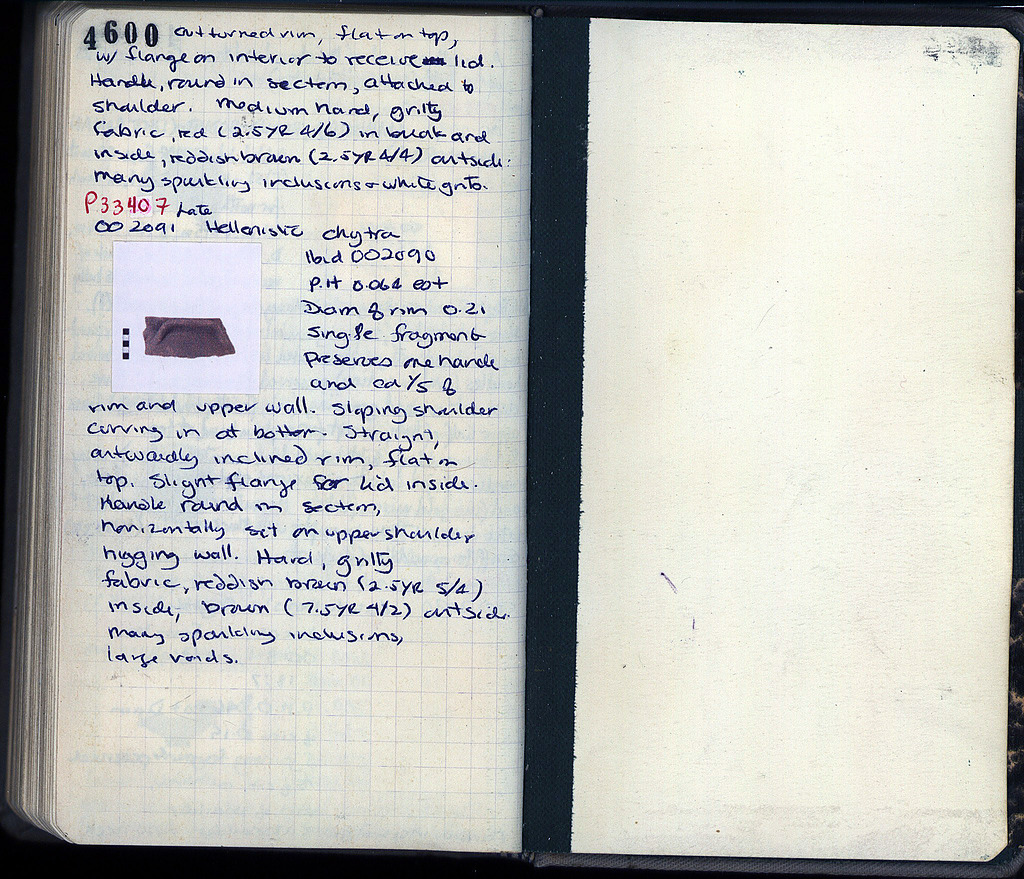 4600 outturned rim, flat on top,
w/ flange on interior to receive lid.
Handle, round in section, attached to
shoulder. Medium hard, gritty
fabric, red (2.5YR 4/6) in break and
inside, reddish brown (2.5YR 4/4) outside.
Many sparkling inclusions + white grits.
P33407 Late
002091 Hellenistic chytra
Ibid 002090
P.H 0.064 est
Diam of rim 0.21
Single fragment
Preserves one handle
and ca 1/5 of
rim and upper wall. Sloping shoulder
curving in at bottom. Straight,
outwardly inclined rim, flat on
top. Slight flange for lid inside.
Handle round in section,
horizontally set on upper shoulder
hugging wall. Hard, gritty
fabric, reddish brown (2.5YR 5/4)
inside, brown (7.5YR 4/2) outside.
Many sparkling inclusions,
large voids.